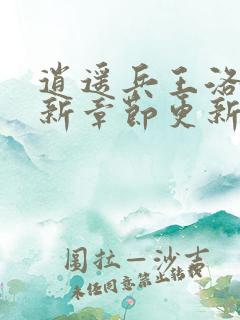 逍遥兵王洛
新章节更新
图拉一沙吉
未经同意禁止转载